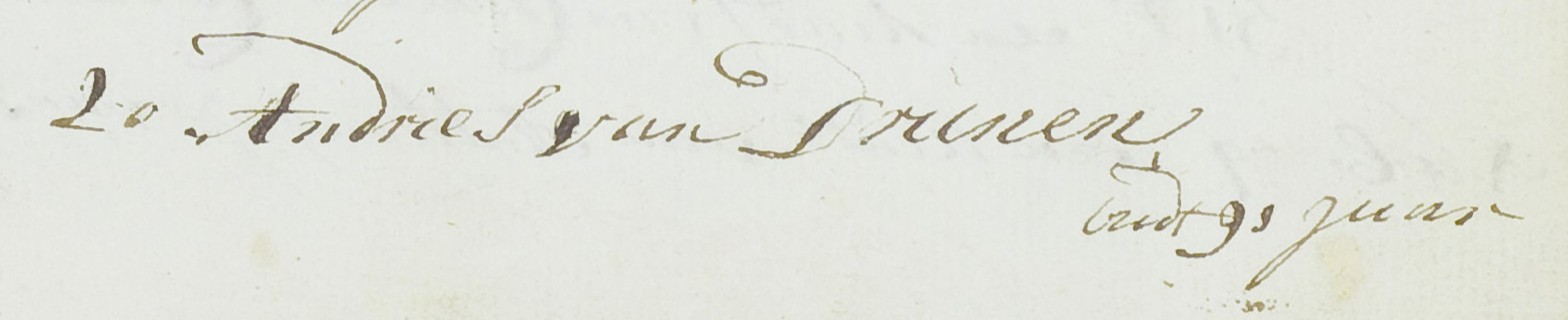 20 Andries van Drunen
oudt 91 jaar